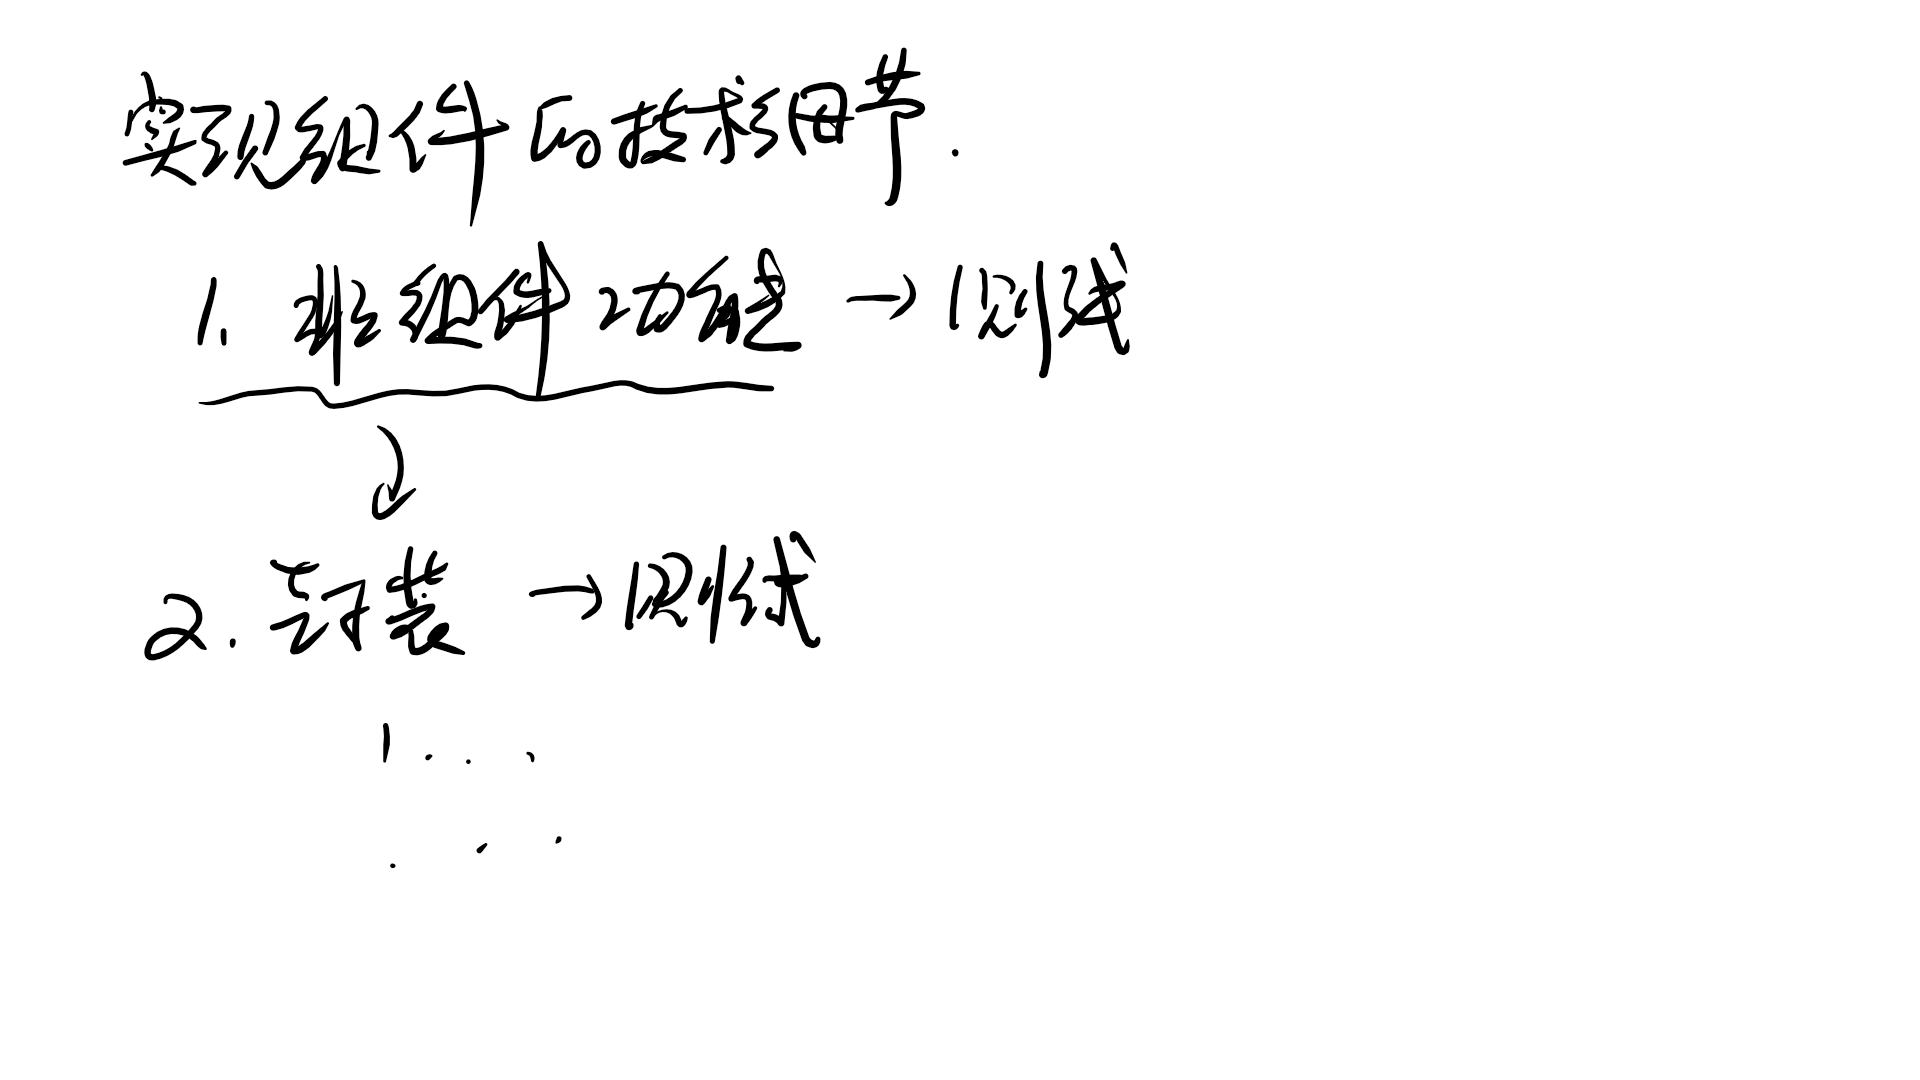 实现组件的技术细节.
1. 非组件功能 → 测试
2. 封装 → 测试